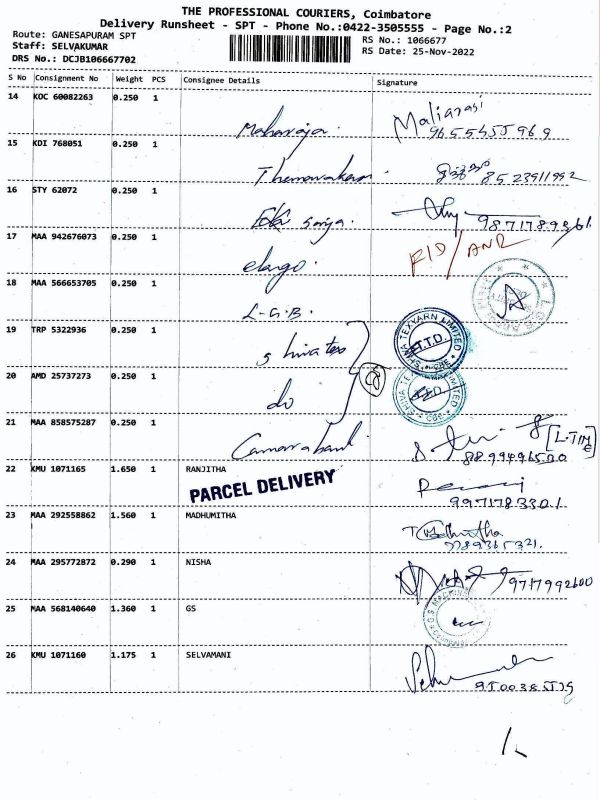 THE PROFESSIONAL COURIERS, Coimbatore
Delivery Runsheet - SPT - Phone No.:0422-3505555 - Page No.:2
Route: GANESAPURAM SPT
Staff: SELVAKUMAR
DRS No.: DCJB106667702
RS No.: 1066677
RS Date: 25-Nov-2022
S No Consignment No Weight PCS Consignee Details Signature
14 KOC 60082263 0.250 1
Maharaja. 9655455969
15 KDI 768051 0.250 1
8523911992
16 STY 62072 0.250 1
17 MAA 942676073 0.250 1
elango.
18 MAA 566653705 0.250 1
L-G.B.
19 TRP 5322936 0.250 1
SHIVA TEXYARN LIMITED
20 AMD 25737273 0.250 1
do
21 MAA 858575287 0.250 1
22 KMU 1071165 1.650 1 RANJITHA
PARCEL DELIVERY
9971783301
23 MAA 292558862 1.560 1 MADHUMITHA
24 MAA 295772872 0.290 1 NISHA
9717992600
25 MAA 568140640 1.360 1 GS
26 KMU 1071160 1.175 1 SELVAMANI